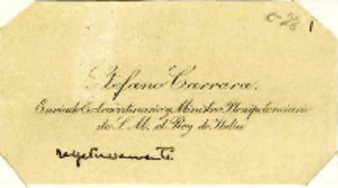 c-28 1
Stefano Carrara.
Enviado Extraordinario y Ministro Plenipotenciario
de S. M. el Rey de Italia
respetuosamente